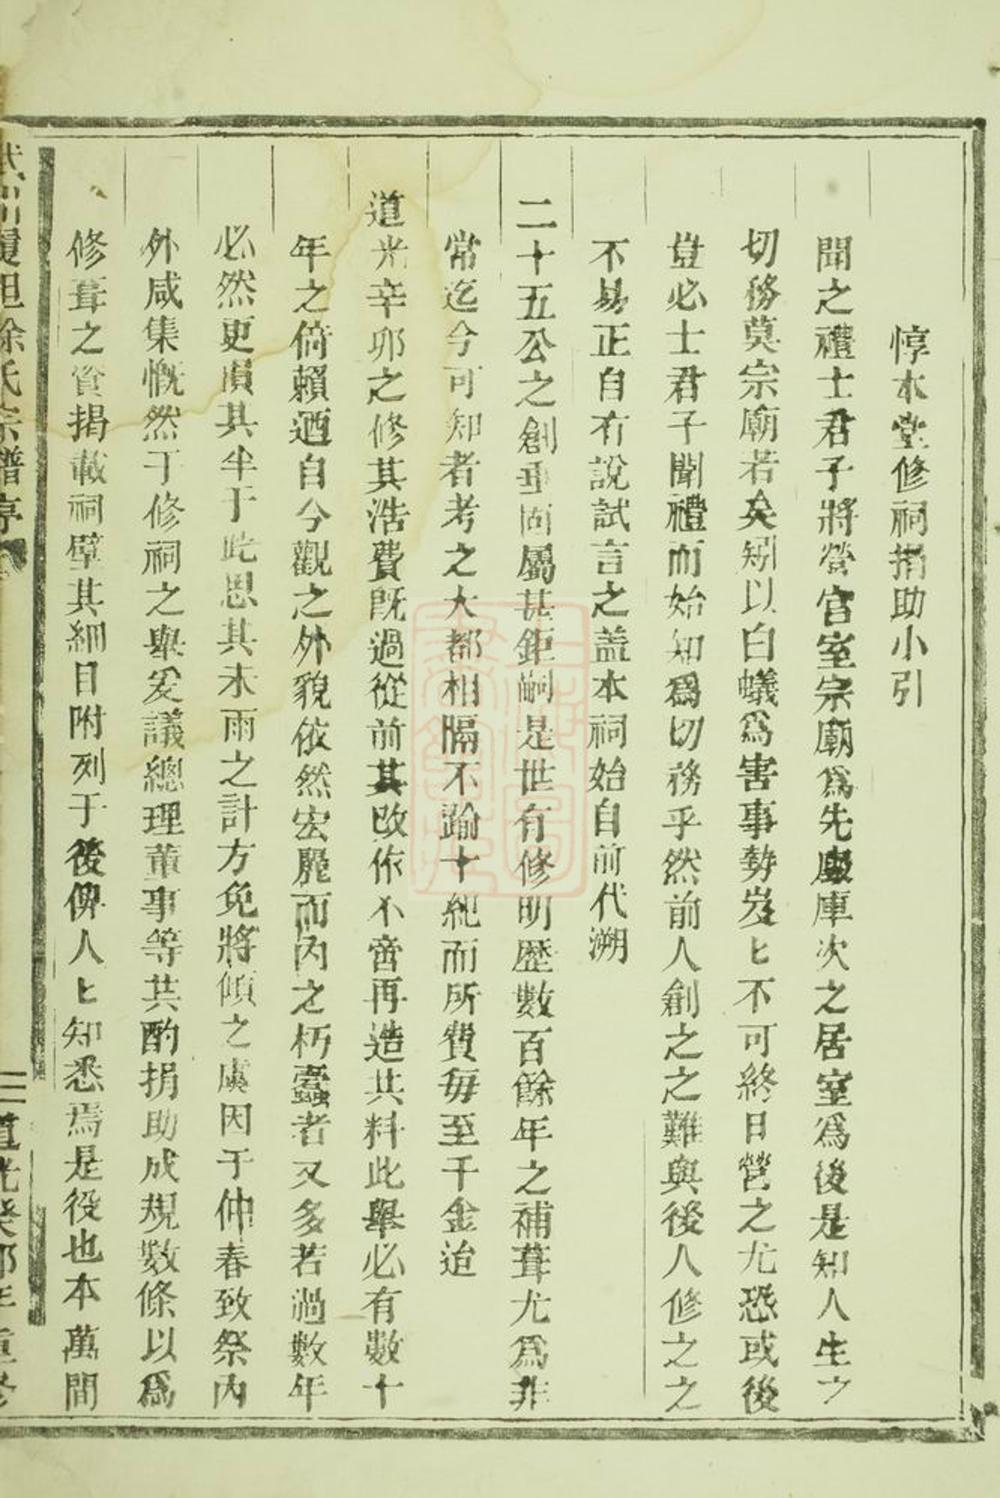 惇本堂修祠捐助小引
聞之禮士君子將營宮室宗廟為先廄庫次之居室為後是知人生之
切務莫宗廟若矣矧以白蟻為害事勢岌〻不可終日營之尤恐或後
豈必士君子聞禮而始知爲切務乎然前人創之之難與後人修之之
不易正自有說試言之蓋本祠始自前代溯
二十五公之創垂固屬甚鉅嗣是世有修明歷數百餘年之補葺尤爲非
常迄今可知者考之大都相隔不踰十紀而所費每至千金迨
道光辛卯之修其浩費既過從前其改作不啻再造共料此舉必有數十
年之倚賴迺自今觀之外貌依然宏麗而內之朽蠹者又多若過數年
必然更損其半于此思其未雨之計方免將傾之虞因于仲春致祭內
外咸集慨然于修祠之舉爰議總理董事等共酌捐助成規數條以爲
修葺之資揭載祠壁其細目附列于後俾人〻知悉焉是役也本萬間
武川履坦徐氏宗譜序
道光癸卯年重修